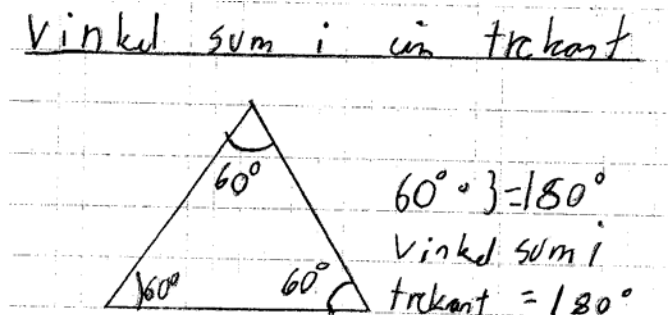 Vinkel sum i en trekant
60°
60° · 3 = 180°
Vinkel sum i
60° 60° trekant = 180°